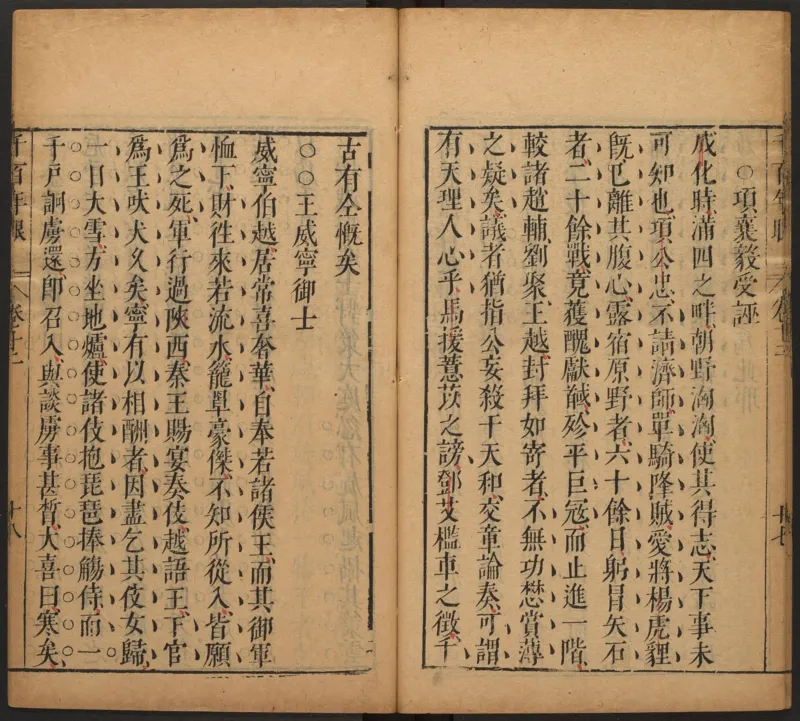 ○項襄毅受誣
成化時滿四之畔朝野洶洶使其得志天下事未
可知也項公忠不請濟師單騎降賊愛將楊虎貍
旣已離其腹心露宿原野者六十餘日躬冒矢石
者二十餘戰竟獲醜獻馘殄平巨冦而止進一階
較諸趙輔劉聚王越封拜如寄者不無功懋賞薄
之疑矣議者猶指公妄殺干天和交章論奏可謂
有天理人心乎馬援薏苡之謗鄧艾檻車之徵千
古有仝慨矣
○○王威寧御士
威寧伯越居常喜奢華自奉若諸侯王而其御軍
恤下財徃來若流水籠罩豪傑不知所從入皆願
爲之死軍行過陝西秦王賜宴奏伎越語王下官
爲王吠犬久矣寧有以相酬者因盡乞其伎女歸
一日大雪方坐地爐使諸伎抱琵琶捧觴侍而一
千戸詗虜還卽召入與談虜事甚晳大喜曰寒矣
千百年眼
卷十二
十八